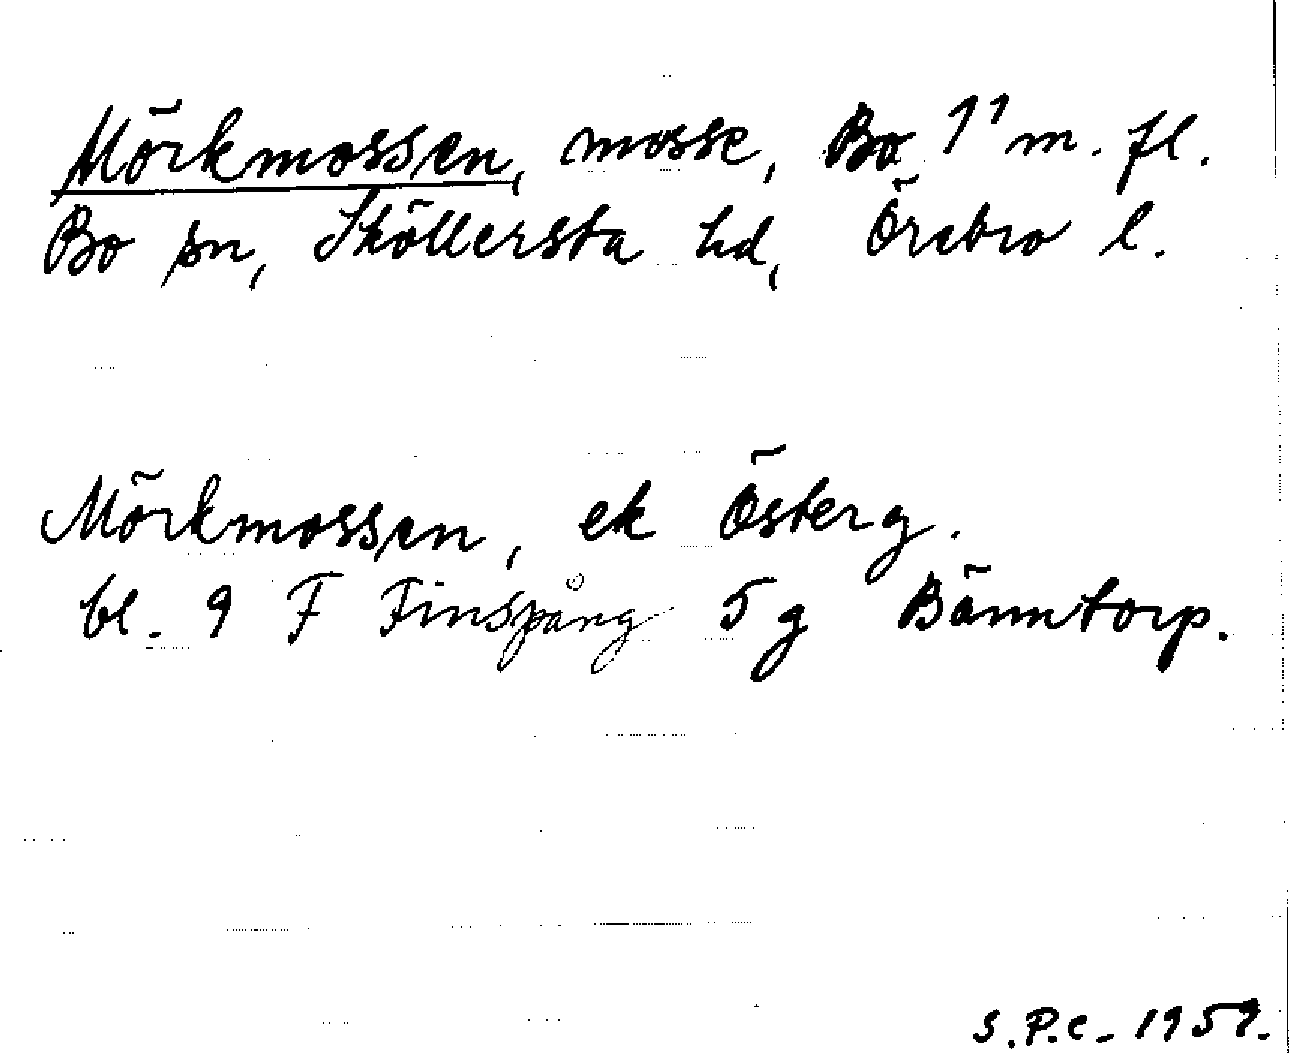 Mörkmossen, mosse, Bo 1¹ m. fl.
Bo sn, Sköllersta hd, Örebro l.
Mörkmossen, ek Österg.
bl. 9 F Finspång 5 g Bänntorp.
S.P.C. 1959.